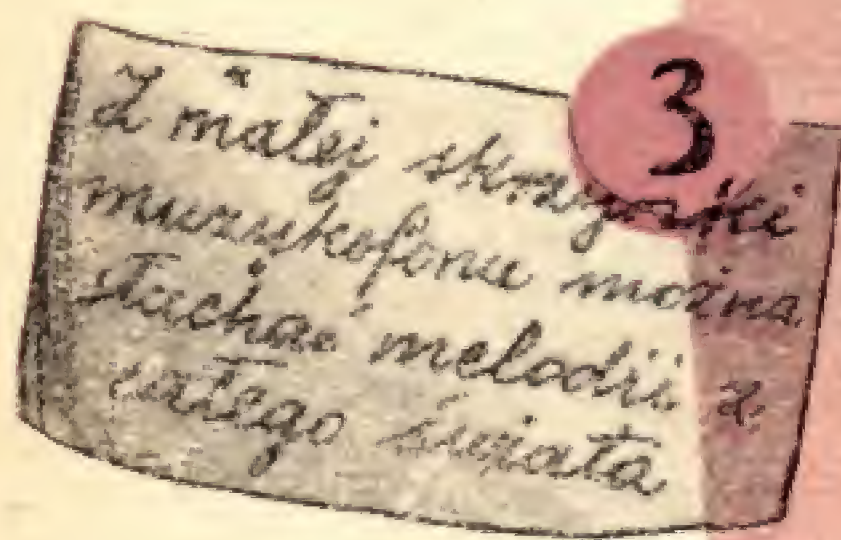 3
Z małej skrzynki
muzukofonu można
słuchać melodii z
całego świata